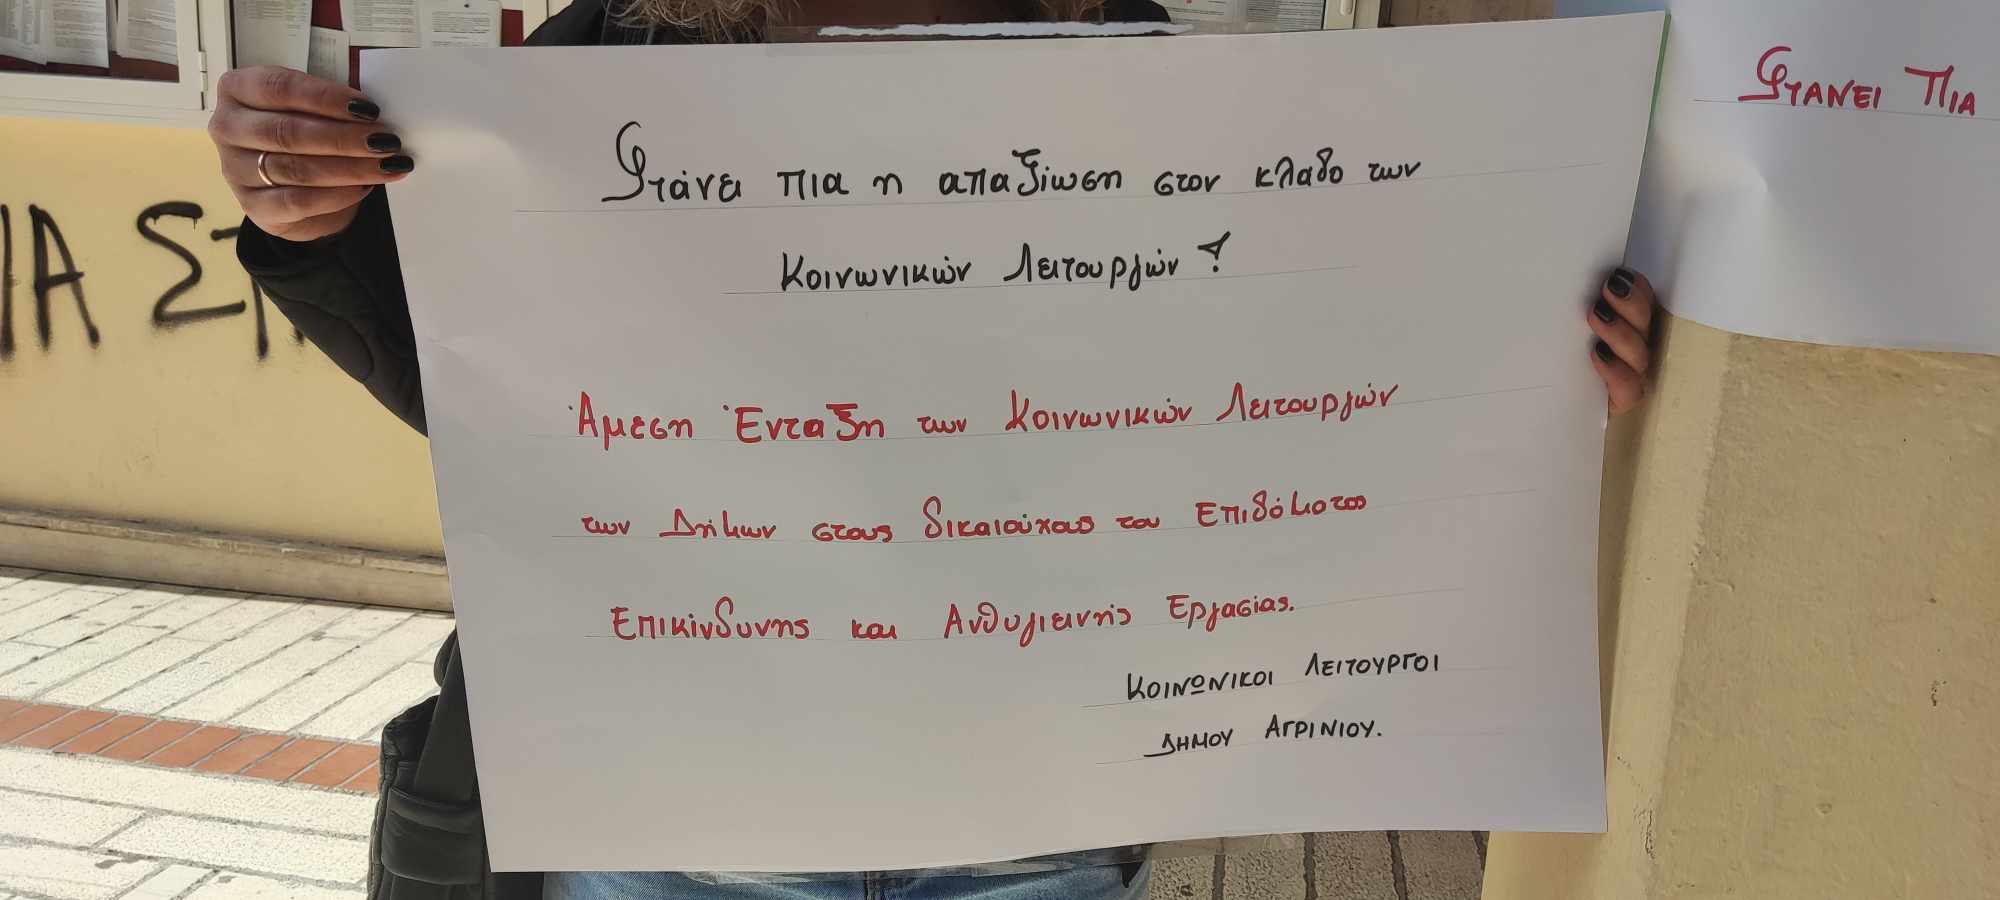 Φτάνει πια η απαξίωση στον κλαδο των
Κοινωνικών Λειτουργών!
Άμεση Ένταξη των Κοινωνικών Λειτουργών
των Δήμων στους δικαιούχους του Επιδόματος
Επικίνδυνης και Ανθυγιεινής Εργασίας.
ΚΟΙΝΩΝΙΚΟΙ ΛΕΙΤΟΥΡΓΟΙ
ΔΗΜΟΥ ΑΓΡΙΝΙΟΥ.
ΦΤΑΝΕΙ ΠΙΑ